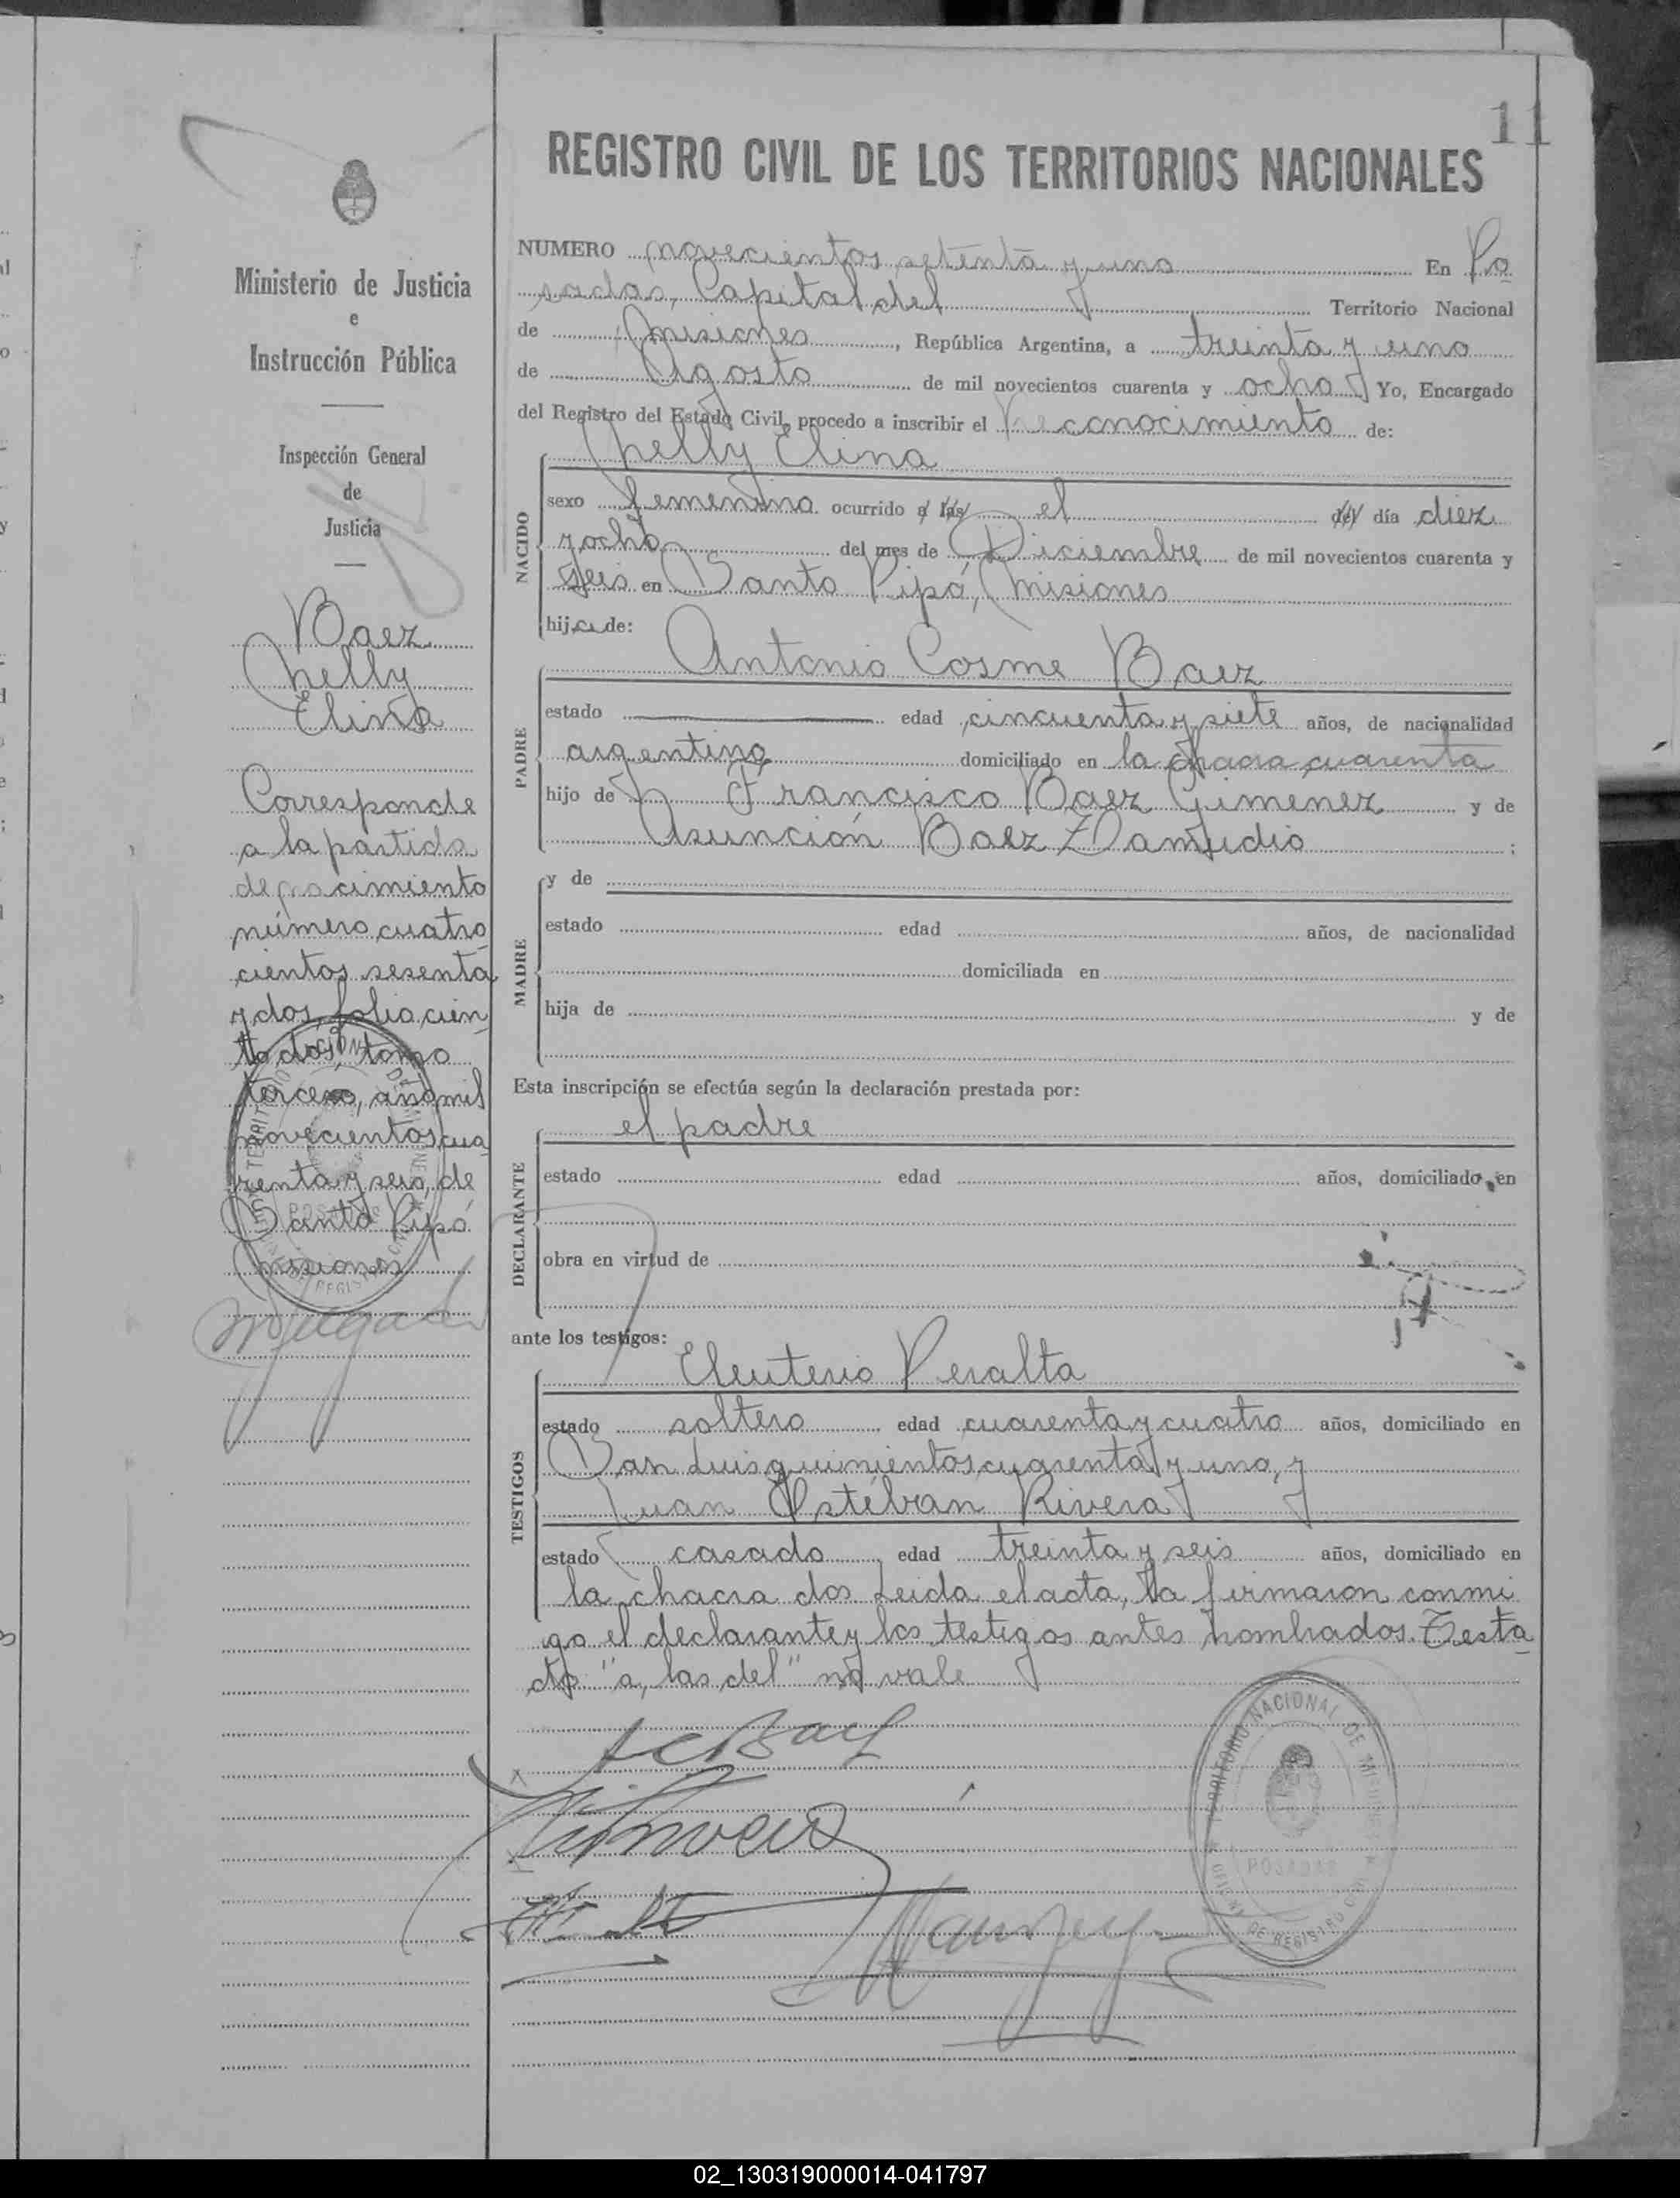 11
REGISTRO CIVIL DE LOS TERRITORIOS NACIONALES
Ministerio de Justicia
e
Instrucción Pública
Inspección General
de
Justicia
Baez
Nelly
Elina
Corresponde
a la partida
de nacimiento
número cuatro
cientos sesenta
y dos, folio cien
to dos, tomo
tercero, año mil
novecientos cua
renta y seis, de
Santo Pipó
Misiones
NUMERO novecientos setenta y uno En Po
sadas, Capital del Territorio Nacional
de Misiones, República Argentina, a treinta y uno
de Agosto de mil novecientos cuarenta y ocho Yo, Encargado
del Registro del Estado Civil, procedo a inscribir el Reconocimiento de:
Nelly Elina
NACIDO
sexo femenino ocurrido a las el del día diez
y ocho del mes de Diciembre de mil novecientos cuarenta y
seis en Santo Pipó, Misiones
hija de:
Antonio Cosme Baez
PADRE
estado edad cincuenta y siete años, de nacionalidad
argentina domiciliado en la chacra cuarenta
hijo de Francisco Baez Gimenez y de
Asunción Baez Zamudio ;
MADRE
y de
estado edad años, de nacionalidad
domiciliada en
hija de y de
Esta inscripción se efectúa según la declaración prestada por:
el padre
DECLARANTE
estado edad años, domiciliado en
obra en virtud de
ante los testigos:
Eleuterio Peralta
TESTIGOS
estado soltero edad cuarenta y cuatro años, domiciliado en
San Luis quinientos cuarenta y uno, y
Juan Estéban Rivera
estado casado edad treinta y seis años, domiciliado en
la chacra dos Leida el acta, la firmaron conmi
go el declarante y los testigos antes nombrados. Testa
do "a, las del" no vale
A C Baez
TERRITORIO NACIONAL DE MISIONES
POSADAS
OFICINA DE REGISTRO CIVIL
02_130319000014-041797